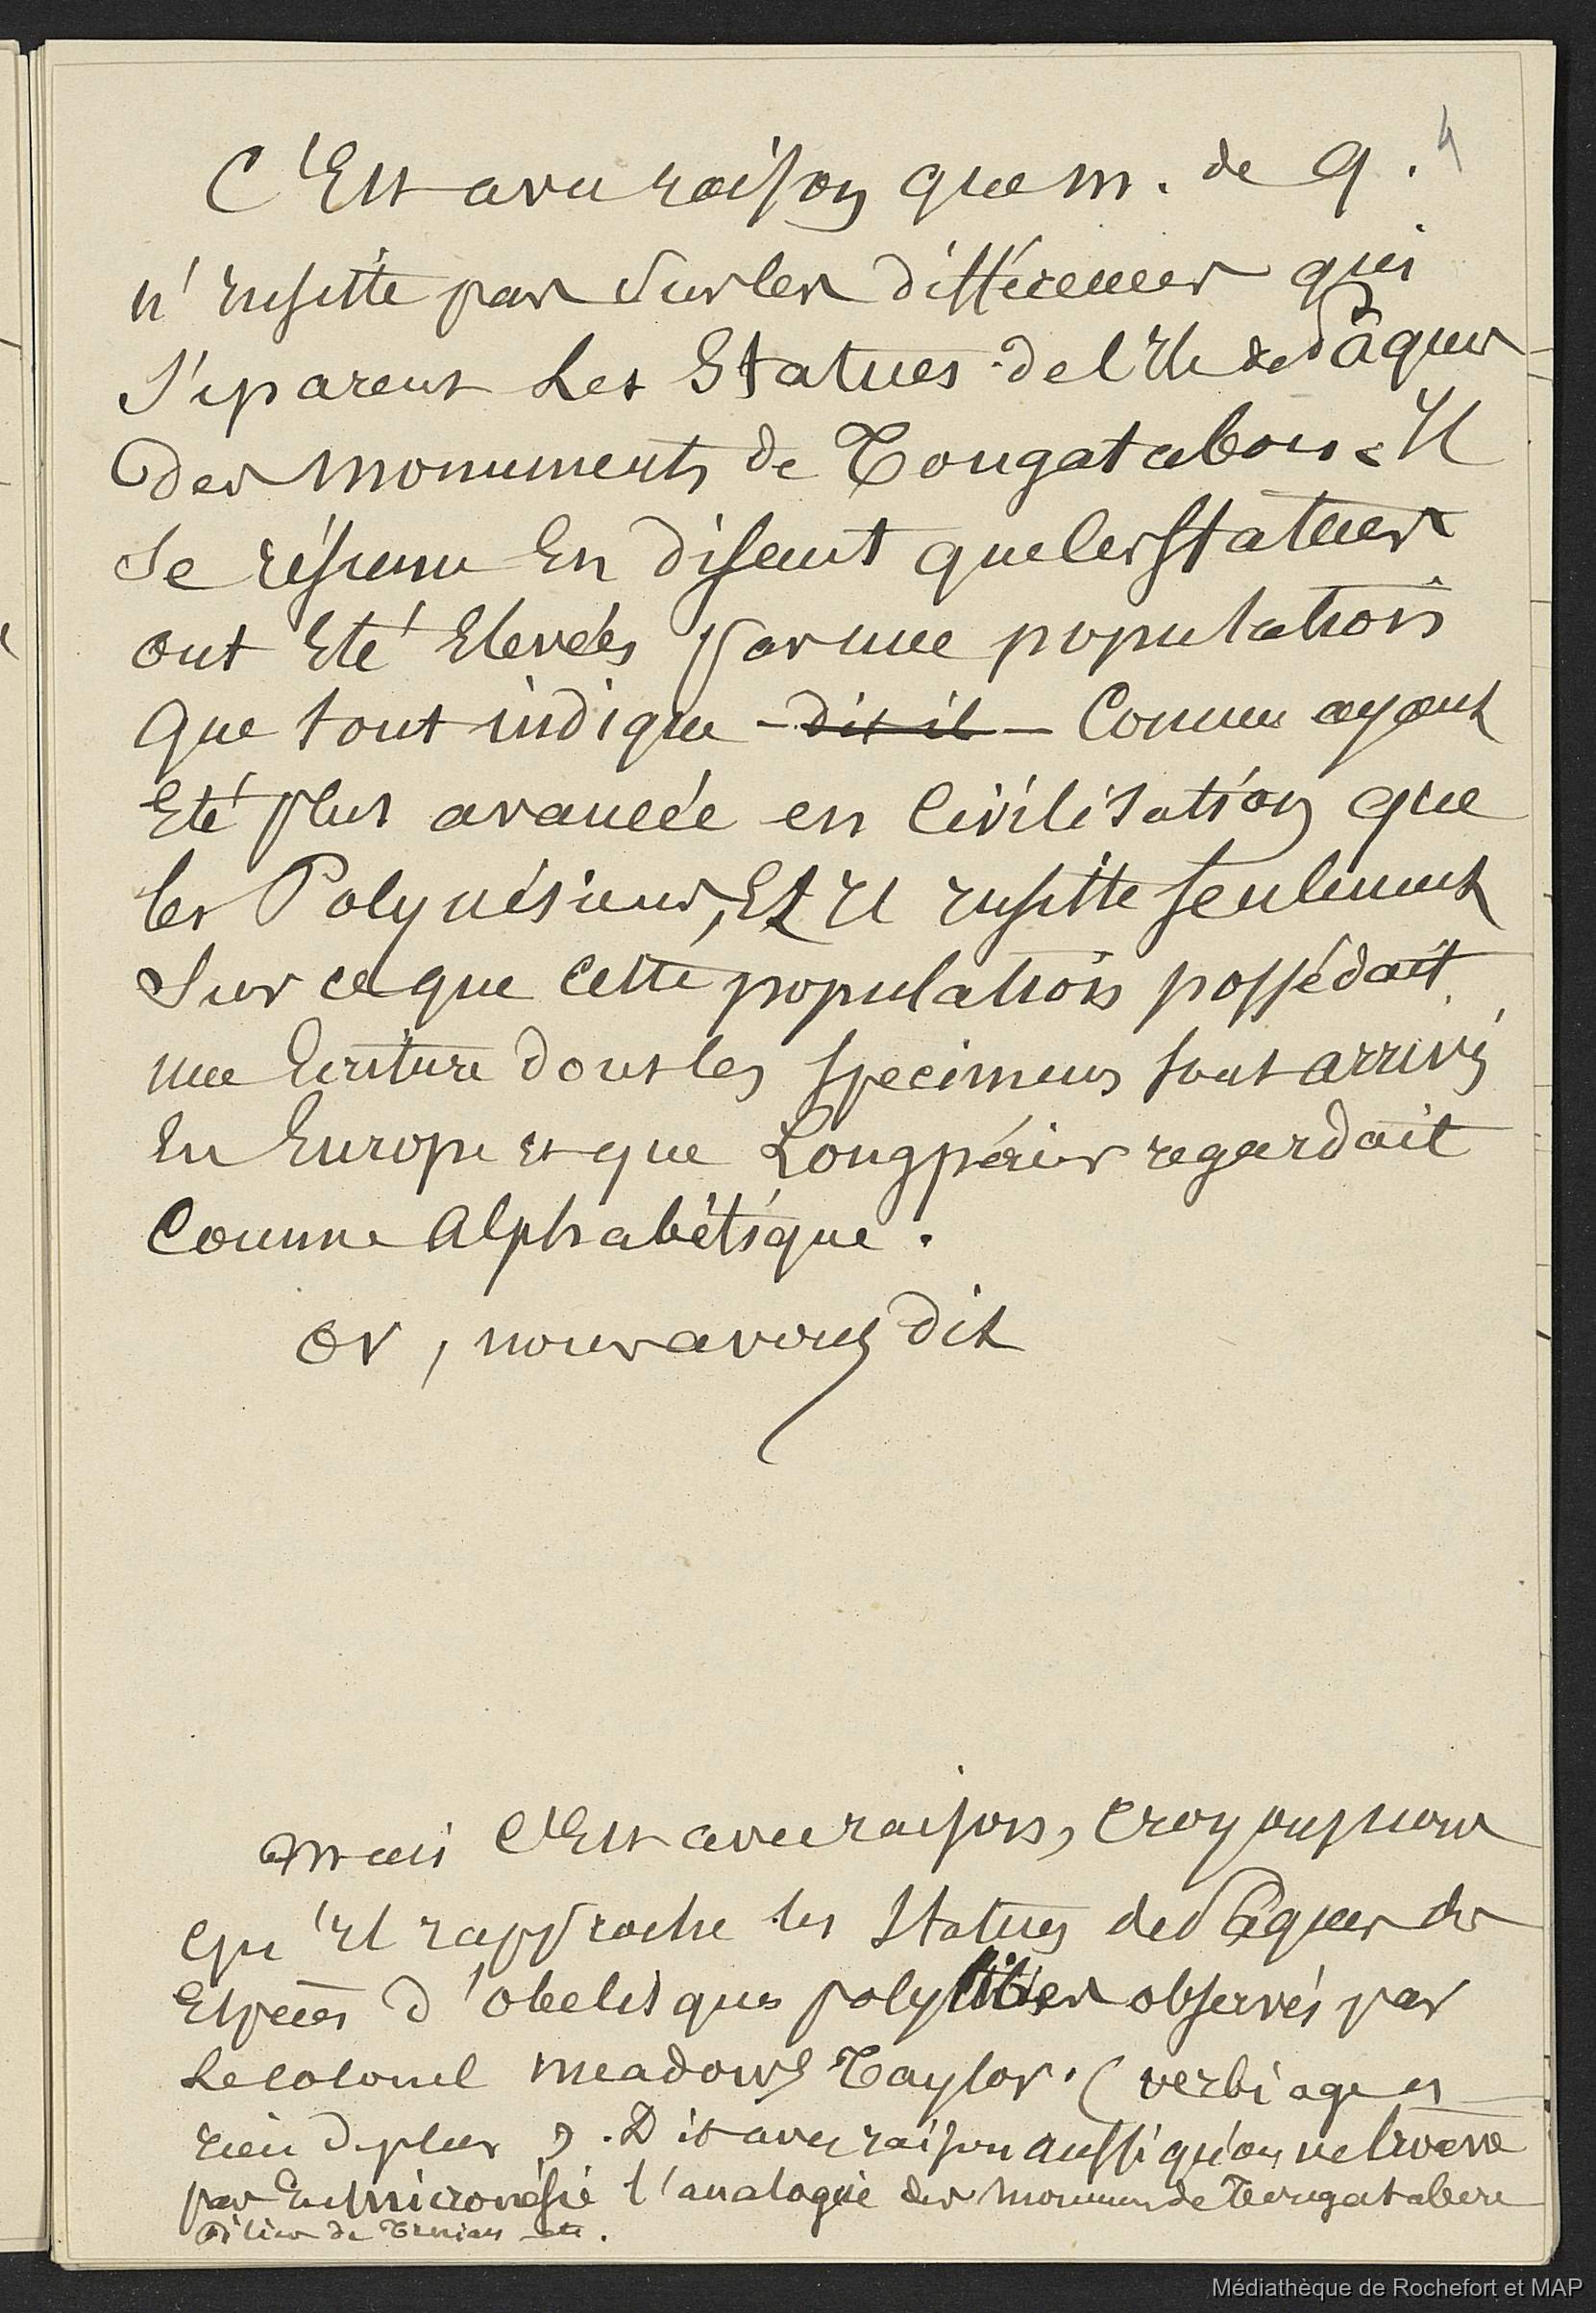 4
C'Est avec raison que m. de Q.
n'insiste pas sur les différences qui
séparent Les Statues de l'Ile de Pâques
des monuments de Tongatabou. Il
se résume En disant que les statues
ont Eté Elevées par une population
que tout indique - dit il - Comme ayant
Eté plus avancée en Civilisation que
les Polynésiens, Et Il insiste seulement
sur ce que cette population possédait
une Ecriture dont les specimens sont arrivés
En Europe et que Longpérier regardait
Comme Alphabétique.
Or, nous avons dit
mais C'Est avec raison, croyons nous
qu'Il rapproche les Statues de Pâques des
Espèces d'obelisques observés par
Le Colonel Meadows Taylor. (verbiage et
rien de plus). Dit avec raison aussi qu'on ne trouve
pas En micronésie l'analogie des monum de Tongatabou
Piliers de Tinian etc.
Médiathèque de Rochefort et MAP